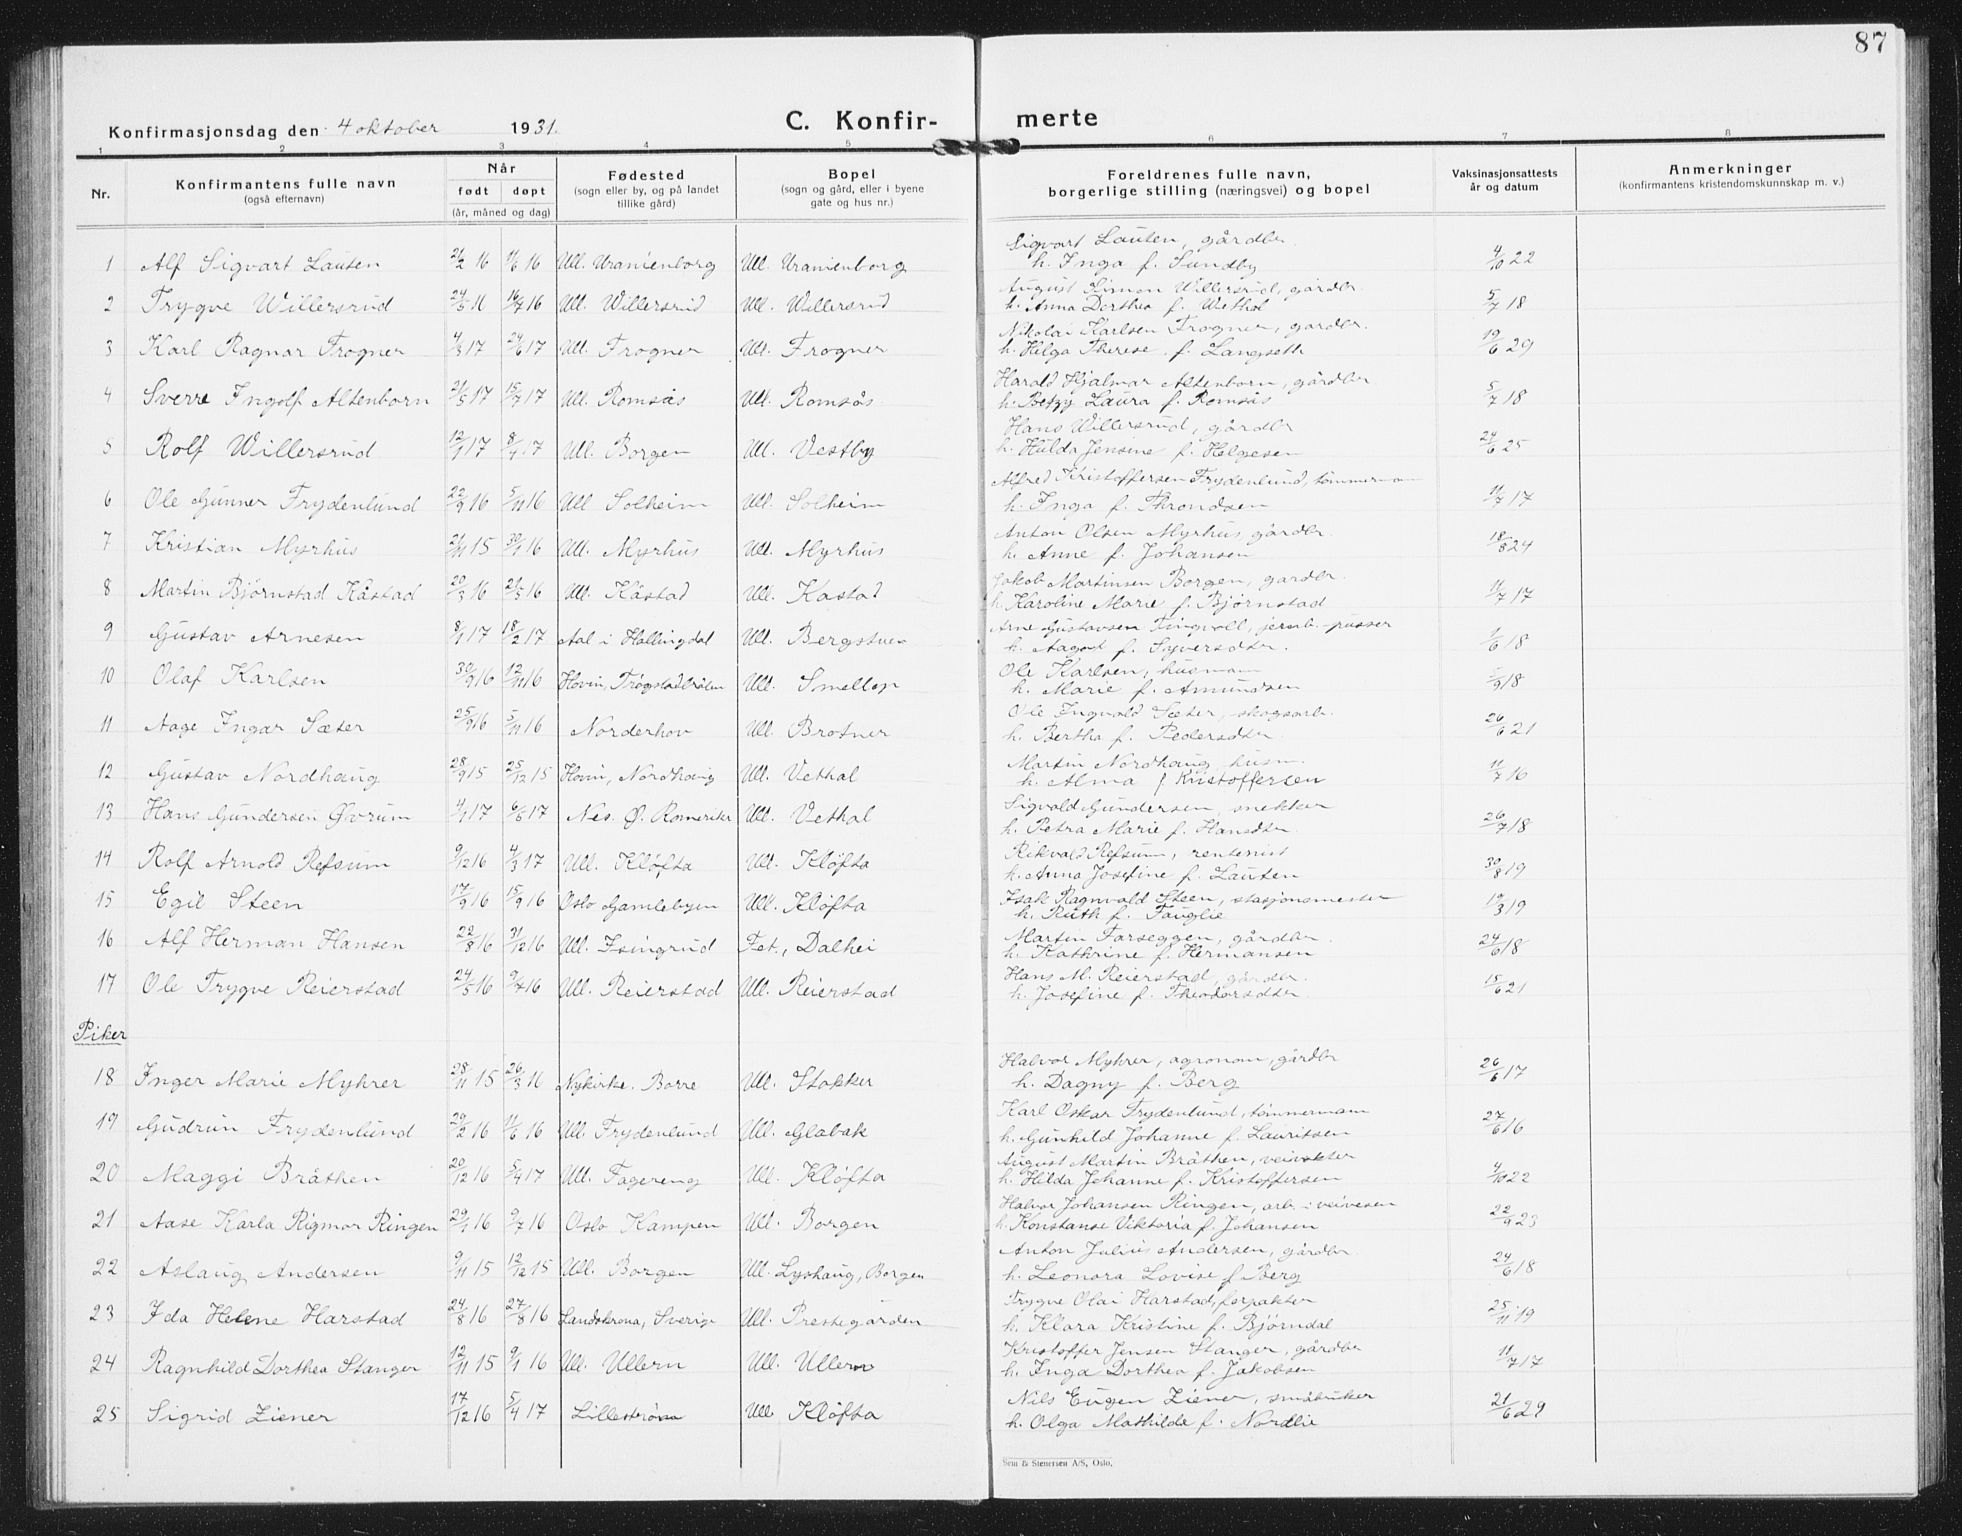 87
Konfirmasjonsdag den 4 oktober 1931.
C. Konfirmerte
1 2 3 4 5 6 7 8
Nr.
Konfirmantens fulle navn
(også efternavn)
Når
født døpt
(år, måned og dag)
Fødested
(sogn eller by, og på landet
tillike gård)
Bopel
(sogn og gård, eller i byene
gate og hus nr.)
Foreldrenes fulle navn,
borgerlige stilling (næringsvei) og bopel
Vaksinasjonsattests
år og datum
Anmerkninger
(konfirmantens kristendomskunnskap m. v.)
1 Alf Sigvart Lauten 21/2 16 4/6 16 Ull. Uranienborg Ull. Uranienborg Sigvart Lauten, gårdbr. 4/10 22
h. Inga f. Sundby
2 Trygve Willersrud 24/5 16 16/7 16 Ull. Willersrud Ull. Willersrud August Simon Willersrud, gårdbr. 5/7 18
h. Anna Dorthea f. Wethal
3 Karl Ragnar Frogner 4/3 17 24/6 17 Ull. Frogner Ull. Frogner Nikolai Karlsen Frogner, gardbr. 19/6 29
h. Helga Therese f. Langseth
4 Sverre Ingolf Altenborn 21/5 17 15/7 17 Ull. Romsås Ull. Romsås Harald Hjalmar Altenborn, gårdbr. 5/7 18
h. Betzy Laura f. Romsås
5 Rolf Willersrud 12/1 17 8/4 17 Ull. Borgen Ull. Vestby Hans Willersrud, gårdbr 24/6 25
h. Hulda Jensine f. Helgesen
6 Ole Gunner Frydenlund 22/9 16 5/11 16 Ull Solheim Ull. Solheim Alfred Kristoffersen Frydenlund, tömmermann 11/7 17
h. Inga f. Throndsen
7 Kristian Myrhus 21/11 15 30/1 16 Ull. Myrhus Ull. Myrhus Anton Olsen Myrhus gårdbr. 18/8 24
h. Anne f. Johansen
8 Martin Bjørnstad Kåstad 20/3 16 21/5 16 Ull. Kåstad Ull. Kastad Jakob Martinsen Borgen, gardbr. 11/7 17
h. Karoline Marie f. Bjørnstad
9 Gustav Arnesen 8/1 17 18/2 17 Aal i Hallingdal Ull. Bergstuen Arne Gustavsen Tingvoll, jernb.-pusser 1/6 18
h. Aagot f. Syversdtr.
10 Olaf Karlsen 30/9 16 12/11 16 Hovin, Ull. Ole Karlsen, husmann /9 18
h. Marie f. Amundsen
11 Aage Ingar Sæter 25/9 16 5/11 16 Norderhov Ull. Brotner Ole Ingvald Sæter, skogsarb. 26/6 21
h. Bertha f. Pedersdtr.
12 Gustav Nordhaug 28/9 15 25/12 15 Hovin, Nordhaug Ull. Vethal Martin Nordhaug, husm. 11/7 16
h. Alma f. Kristoffersen
13 Hans Gundersen Øvrum 4/1 17 6/6 17 Nes. Ø. Romerike Ull. Vethal Sigvald Gundersen, snekker 26/7 18
h. Petra Marie f. Hansdtr.
14 Rolf Arnold Refsum 9/12 16 4/3 17 Ull. Kløfta Ull. Kløfta Rikvald Refsum, rentenist 30/8 19
h. Anna Josefine f. Lauten
15 Egil Steen 17/9 16 15/9 16 Oslo Gamlebyen Ull. Kløfta Isak Ragnvald Steen, stasjonsmester 19/3 19
h. Ruth f. Fauglie
16 Alf Herman Hansen 22/8 16 31/12 16 Ull. Isingrud Fet., Dalhei Martin Farseggen, gårdbr. 24/6 18
h. Kathrine f. Hermansen
17 Ole Trygve Reierstad 24/5 16 9/7 16 Ull. Reierstad Ull. Reierstad Hans M. Reierstad, gårdbr. 15/6 21
h. Josefine f. Theodorsdtr.
Piker
18 Inger Marie Myhrer 28/11 15 26/3 16 Nykirke. Borre Ull. Stakker Halvor Myhrer, agronom, gårdbr 26/6 17
h. Dagny f. Berg
19 Gudrun Frydenlund 29/2 16 11/6 16 Ull. Frydenlund Ull. Glabak Karl Oskar Frydenlund, tömmermann 27/6 16
h. Gunhild Johanne f. Lauritsen
20 Maggi Bråthen 20/12 16 5/4 17 Ull. Fagereng Ull. Kløfta August Martin Bråthen, veivokter 4/10 22
h. Hilda Johanne f. Kristoffersen
21 Aase Karla Rigmor Ringen 29/1 16 9/7 16 Oslo Kampen Ull. Borgen Halvor Johansen Ringen, arb. i veivesen 22/9 23
h. Konstanse Viktoria f. Johansen
22 Aslaug Andersen 9/11 15 12/12 15 Ull. Borgen Ull. Lyshaug, Borgen Anton Julius Andersen, gårdbr. 24/6 18
h. Leonora Lovise f. Berg
23 Ida Helene Harstad 24/8 16 27/8 16 Landskrona, Sverige Ull. Prestegården Trygve Olai Harstad, forpakter 25/11 19
h. Klara Kristine f. Björndal
24 Ragnhild Dorthea Stanger 12/11 15 9/1 16 Ull. Ullern Ull. Ullern Kristoffer Jensen Stanger, gårdbr 11/7 17
h. Inga Dorthea f. Jakobsen
25 Sigrid Ziener 17/12 16 5/4 17 Lillestrøm Ull Kløfta Nils Eugen Ziener, småbruker 21/6 29
h. Olga Mathilde f. Nordlie
Sem & Stenersen A/S, Oslo.